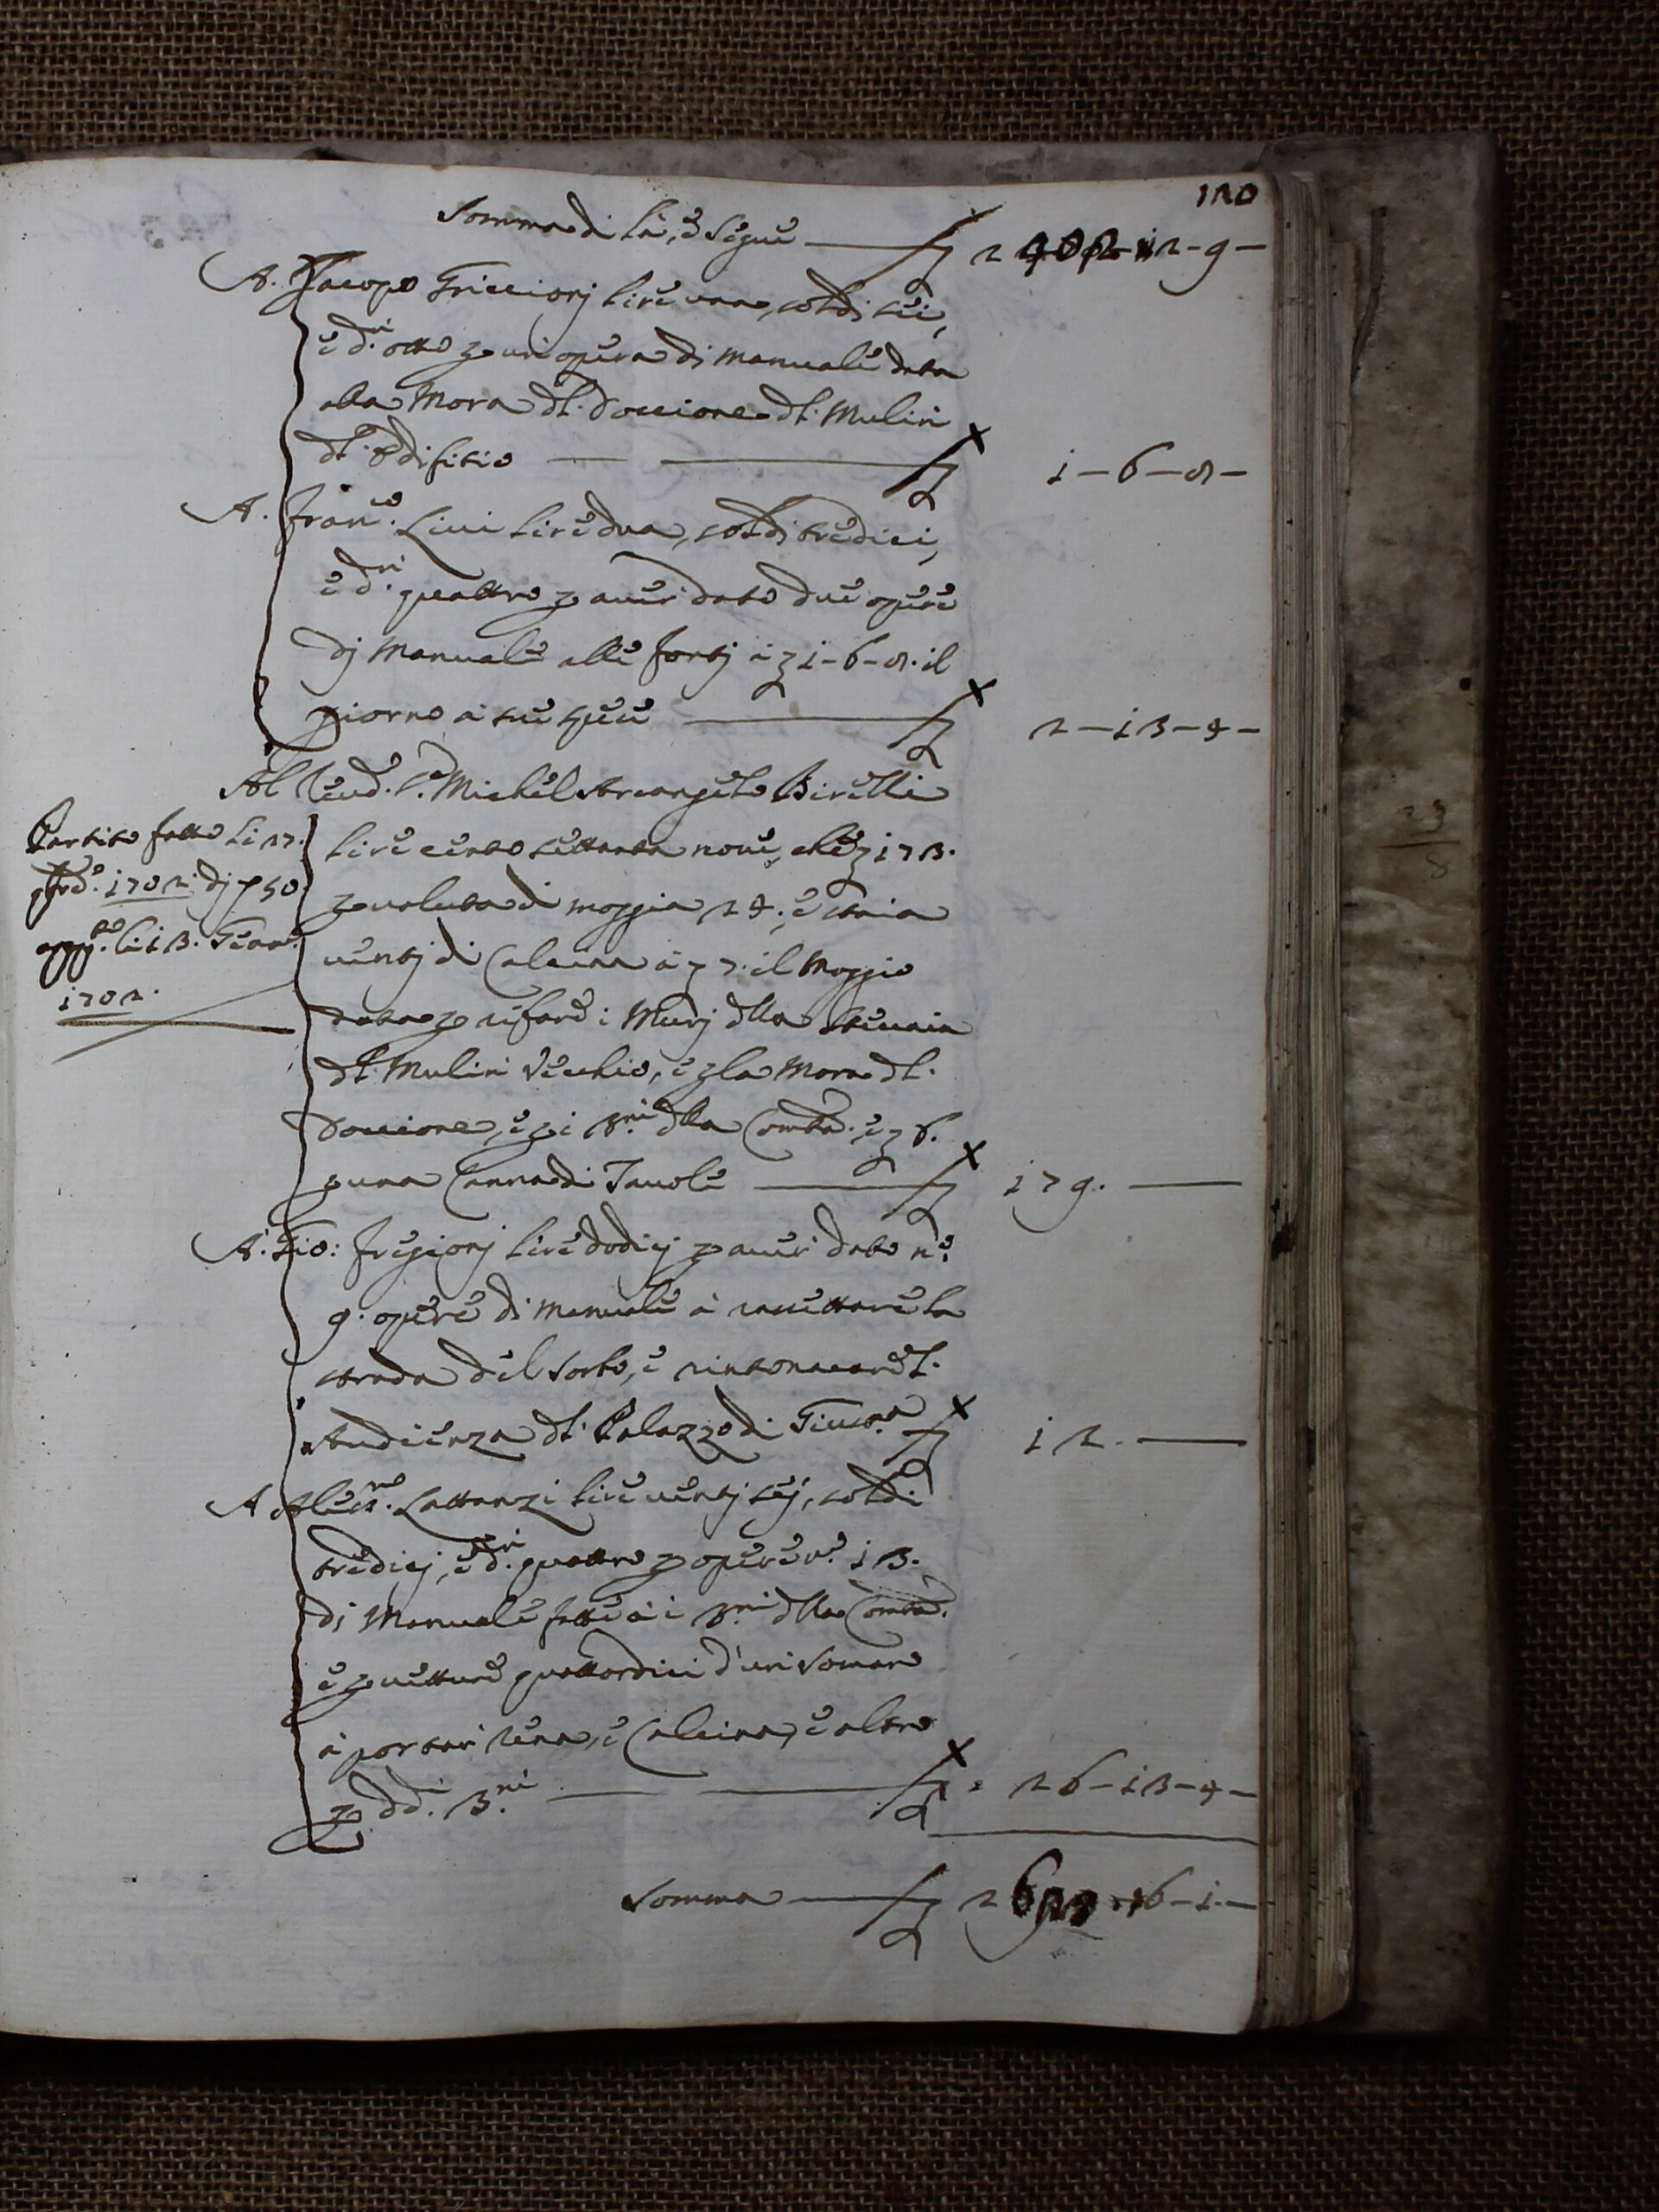 120
Somma di là, e segue £ 2402-12-9-
A. Jacopo Friccionj lire una, soldi sei,
e d.ri otto p un opera di manuale data
alla Mora dl. Doccione dl. Mulin
dl. Edifitio £ 1-6-8-
A. Fran.co Livi lire dua, soldi tredici,
e d.ri quattro p aver dato due opere
dj Manuale alle fontj à £ 1-6-8. il
giorno à sue spese £ 2-13-4-
Al Reud. P. Michel Arcangelo Birelli
lire cento settanta nove, che £ 173.
p valuta di moggia 24. e staia
ventj di Calcina à £ 7. il Moggio
data p rifare i Murj dlla
dl. Mulin Vecchio, e p la Mora dl.
Doccione, e p i B.ni dlla Com.tà. e £ 6.
p una Canna di Tavole £ 179.
Partito fatto li 27.
1702. dj £ 50
app.to li 13. Genn.o
1702.
A. Gio: Fregionj lire dodicj p aver dato n.o
9. opere di manuale à rassettare la
strada del Sorbo, e rintonacare l.
Audienza dl. Palazzo di Giust.a £ 12.
A Aless.ro Lattanzi lire ventj sej, soldi
tredicj, e d.ri quattro p opere n.o 13.
di Manuale fatte à i B.ni dlla Com.tà.
e p vetture quattordici d'un somaro
à portar rena, e Calcina, e altro
p dd.i B.ni £ 26-13-4-
Somma £ 2623-16-1-